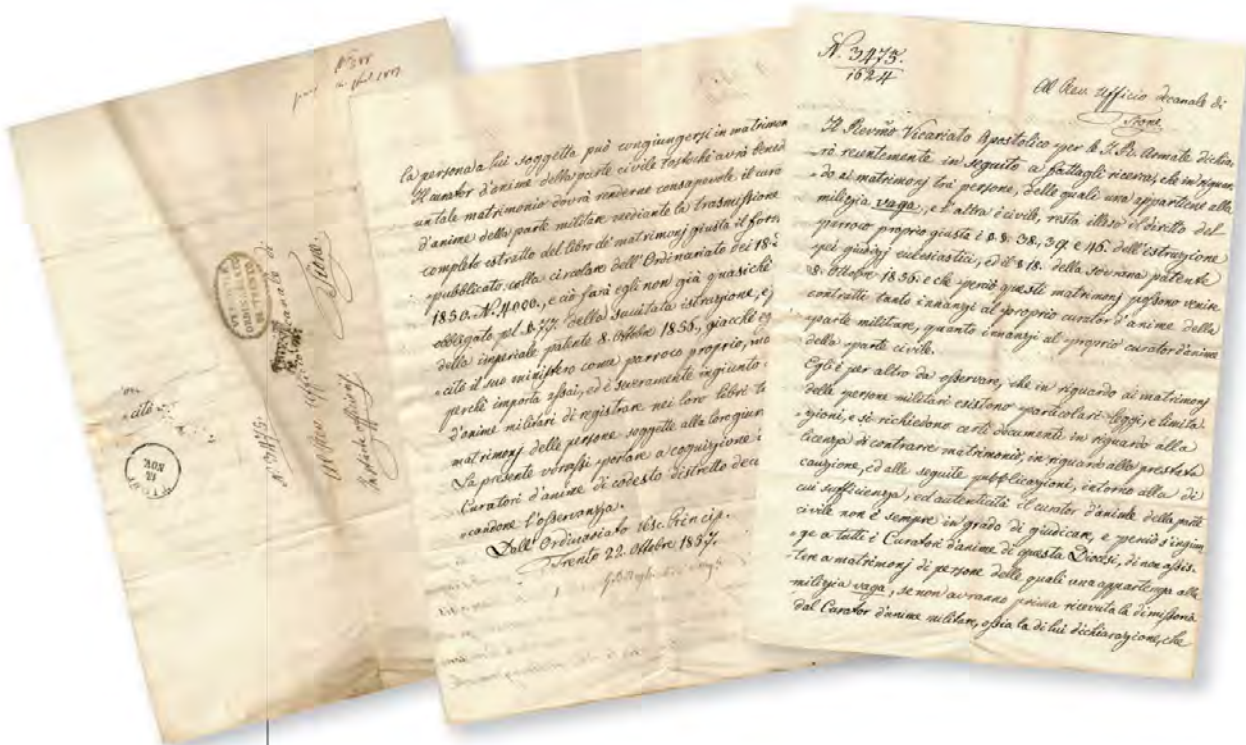 N. 3475.
1624
Al Rev. Ufficio decanale di
Il Revm̃o Vicariato Apostolico per le I. R. Armate dichia-
rò recentemente in seguito a fattagli ricerca, che in riguar-
do ai matrimonj tra persone, delle quali una appartiene alla
milizia vaga, e l'altra è civile, resta illeso il diritto del
parroco proprio giusta i §.§. 38, 39. e 46. dell'istruzione
pei giudizj eclesiastici, ed il § 18. della sovrana patente
8. Ottobre 1856. e che perciò questi matrimonj possono venire
contratti tanto innanzi al proprio curator d'anime della
parte militare, quanto innanzi al proprio curator d'anime
della parte civile.
Egli è per altro da osservare, che in riguardo ai matrimonj
delle persone militari esistono particolari leggi, e limita-
zioni, e si richiedono certi documenti in riguardo alla
licenza di contrarre matrimonio, in riguardo alla prestata
cauzione, ed alle seguite pubblicazioni, intorno alla di
cui sufficienza, ed autenticità il curator d'anime della parte
civile non è sempre in grado di giudicare, e perciò s'ingiun-
ge a tutti i Curatori d'anime di questa Diocesi, di non assis-
tere a matrimonj di persone delle quali una appartenga alla
milizia vaga, se non avranno prima ricevuta la dimissoria
dal Curator d'anime militare, ossia la di lui dichiarazione, che
la persona a lui soggetta può congiungersi in matrimon
Il curator d'anime della parte civile tostochè avrà bened
un tale matrimonio dovrà renderne consapevole il cura
d'anime della parte militare mediante la trasmissione
completo estratto del libro de' matrimonj giusta il form
pubblicato colla circolare dell'Ordinariato dei 18
1850. N. 4000., e ciò farà egli non già quasichè
obbligato pel §. 77. della succitata istruzione, e
della imperiale patente 8. Ottobre 1856, giacchè eg
cita il suo ministero come parroco proprio, ma
perchè importa assai, ed è severamente ingiunto
d'anime militari di registrare nei loro libri t
matrimonj delle persone soggette alla loro giur
La presente vorrassi portare a cognizione
Curatori d'anime di codesto distretto dec
candone l'osservanza.
Dall'Ordinariato Vesc. Princip.
Trento 22. Ottobre 1857.
N. 3475.
Al Rev. Uffic decanale di